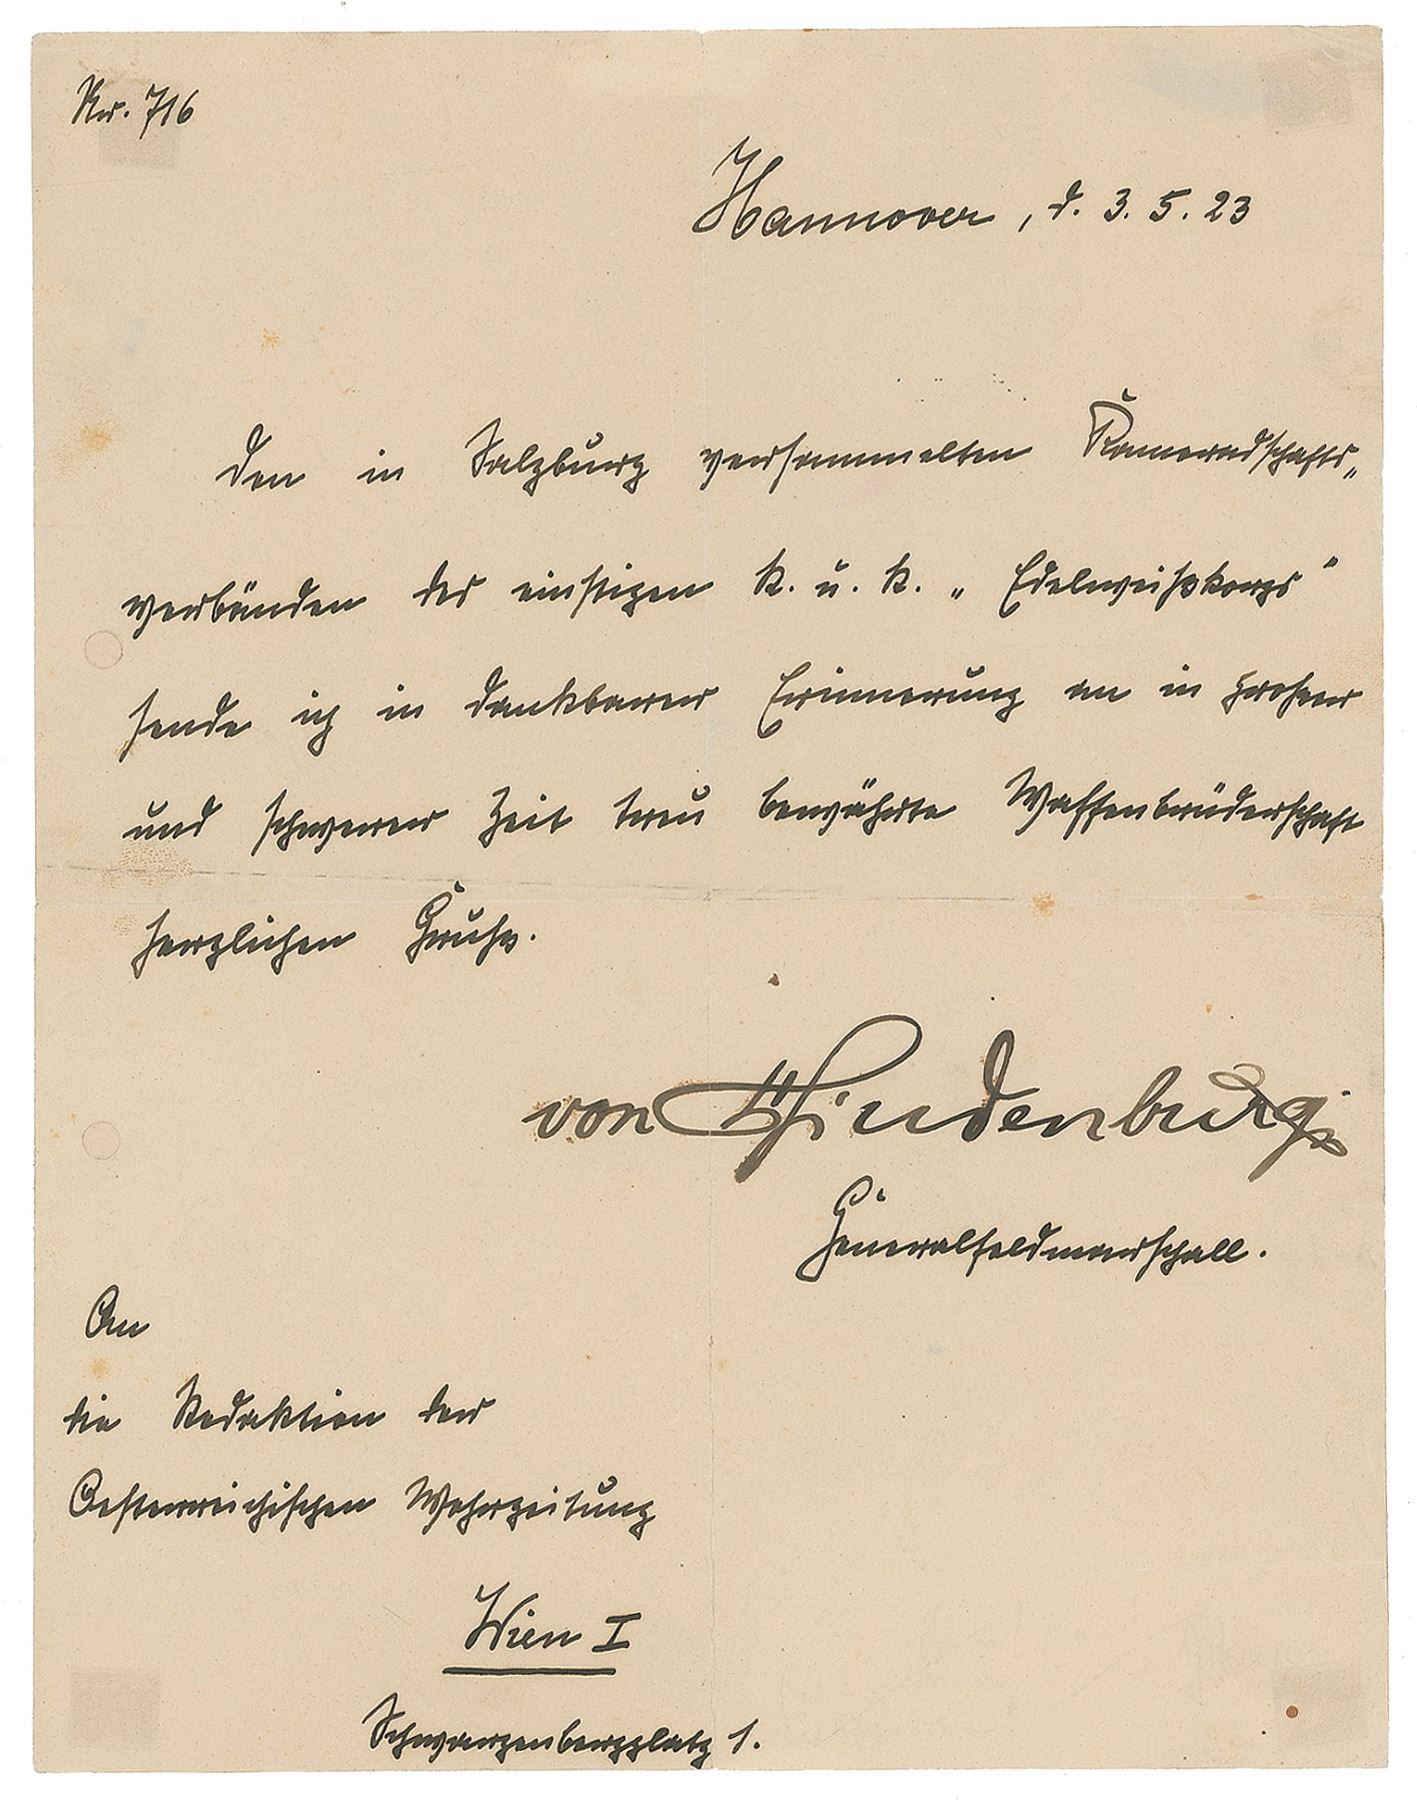 Nr. 716
Hannover, d. 3. 5. 23
Den in Salzburg versammelten Kameradschafts„
verbänden des einstigen k. u. k. „Edelweißkorps“
sende ich in dankbarer Erinnerung an in großer
und schwerer Zeit treu bewährte Waffenbrüderschaft
herzlichen Gruß.
von Hindenburg
Generalfeldmarschall.
An
die Redaktion der
Oesterreichischen Wehrzeitung
Wien I
Schwarzenbergplatz 1.